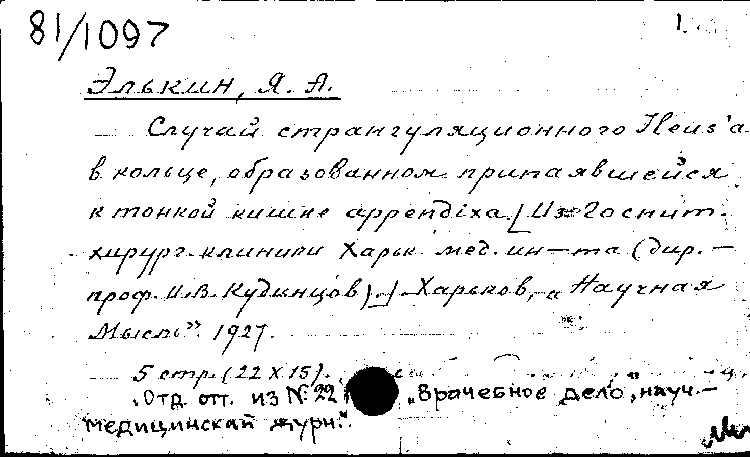 81/1097
Элькин, Я. А.
Случай странгуляционного Ileus'а
в кольце, образованном припаявшейся
к тонкой кишке appendix'а. [Из госпит.
хирург. клиники Харьк. мед. ин-та (дир. –
проф. И.В. Кудинцов).]. Харьков, „Научная
Мысль". 1927.
5 стр. (22 X 15).
Отд. отт. из № 22 „Врачебное дело", науч.-
медицинский журн."